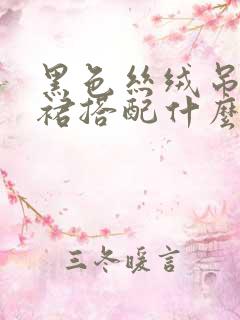 黑色絲絨吊
裙搭配什麼
三冬暖言